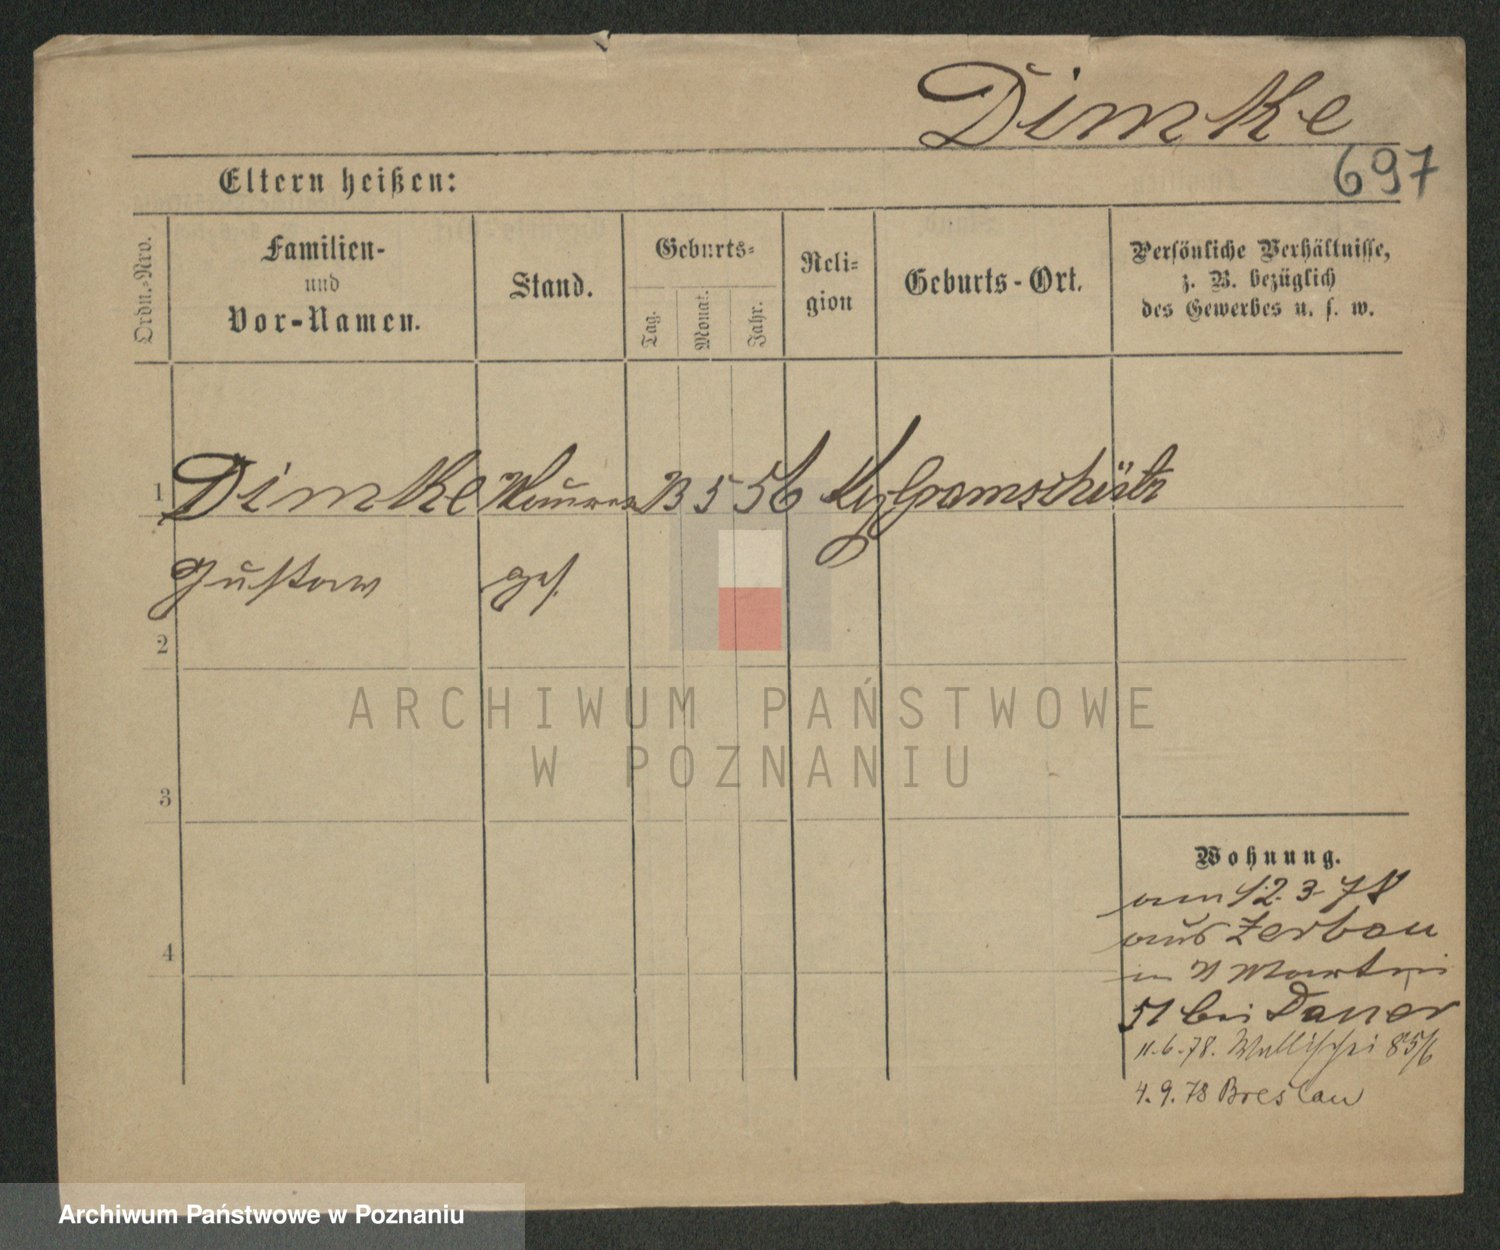 Dimke
697
Eltern heißen:
Ordn.-Nro.
Familien-
und
Vor-Namen.
Stand.
Geburts-
Tag.
Monat.
Jahr.
Reli-
gion
Geburts-Ort.
Persönliche Verhältnisse,
z. B. bezüglich
des Gewerbes u. s. w.
1 Dimke Maurer 23 5 56 Gramschütz
Gustaw ges.
2
ARCHIWUM PAŃSTWOWE
W POZNANIU
3
Wohnung.
am 12.3.78
aus Zerbau
in Martin
4
51 bei Danner
11.6.78. Wallischei 85/6
4.9.78 Breslau
Archiwum Państwowe w Poznaniu